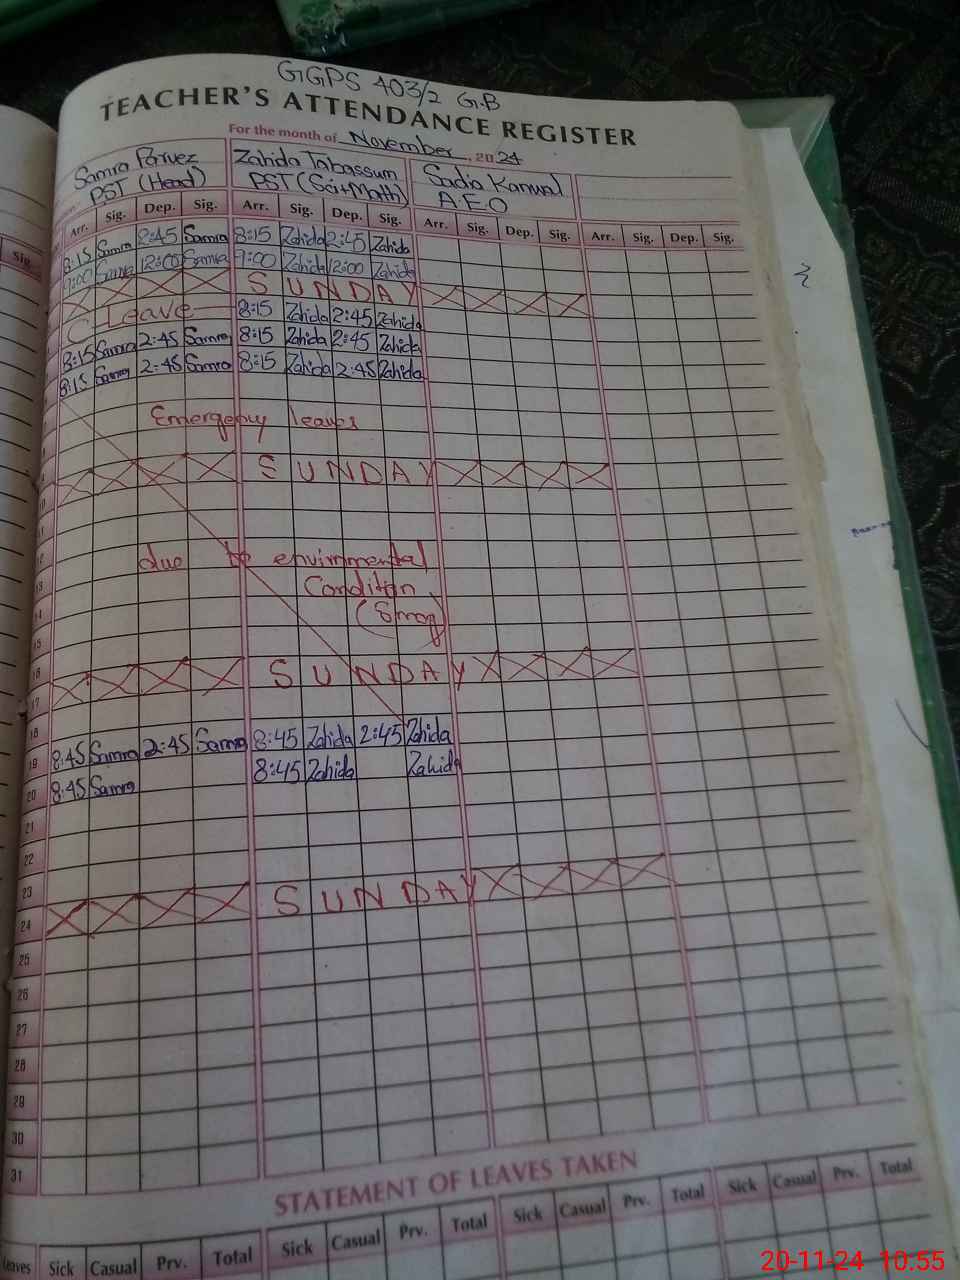 GGPS 403/2 G.B
TEACHER'S ATTENDANCE REGISTER
For the month of November, 2024
Samra Parvez Zahida Tabassum Sadia Kanwal
PST (Head) PST (Sci+Math) A.E.O
Arr. Sig. Dep. Sig. Arr. Sig. Dep. Sig. Arr. Sig. Dep. Sig. Arr. Sig. Dep. Sig.
8:15 Samra 2:45 Samra 8:15 Zahida 2:45 Zahida
9:00 Samra 12:00 Samra 9:00 Zahida 12:00 Zahida
SUNDAY
C. Leave 8:15 Zahida 2:45 Zahida
8:15 Samra 2:45 Samra 8:15 Zahida 2:45 Zahida
8:15 Samra 2:45 Samra 8:15 Zahida 2:45 Zahida
Emergency leaves
SUNDAY
11
12 due to envirnmental
13 Condition
14 (Smog)
15
16
SUNDAY
17
18
19 8:45 Samra 2:45 Samra 8:45 Zahida 2:45 Zahida
20 8:45 Samra 8:45 Zahida Zahida
21
22
23
24 SUNDAY
25
26
27
28
29
30
31
STATEMENT OF LEAVES TAKEN
Leaves Sick Casual Prv. Total Sick Casual Prv. Total Sick Casual Prv. Total Sick Casual Prv. Total
20-11-24 10.55
Sig.